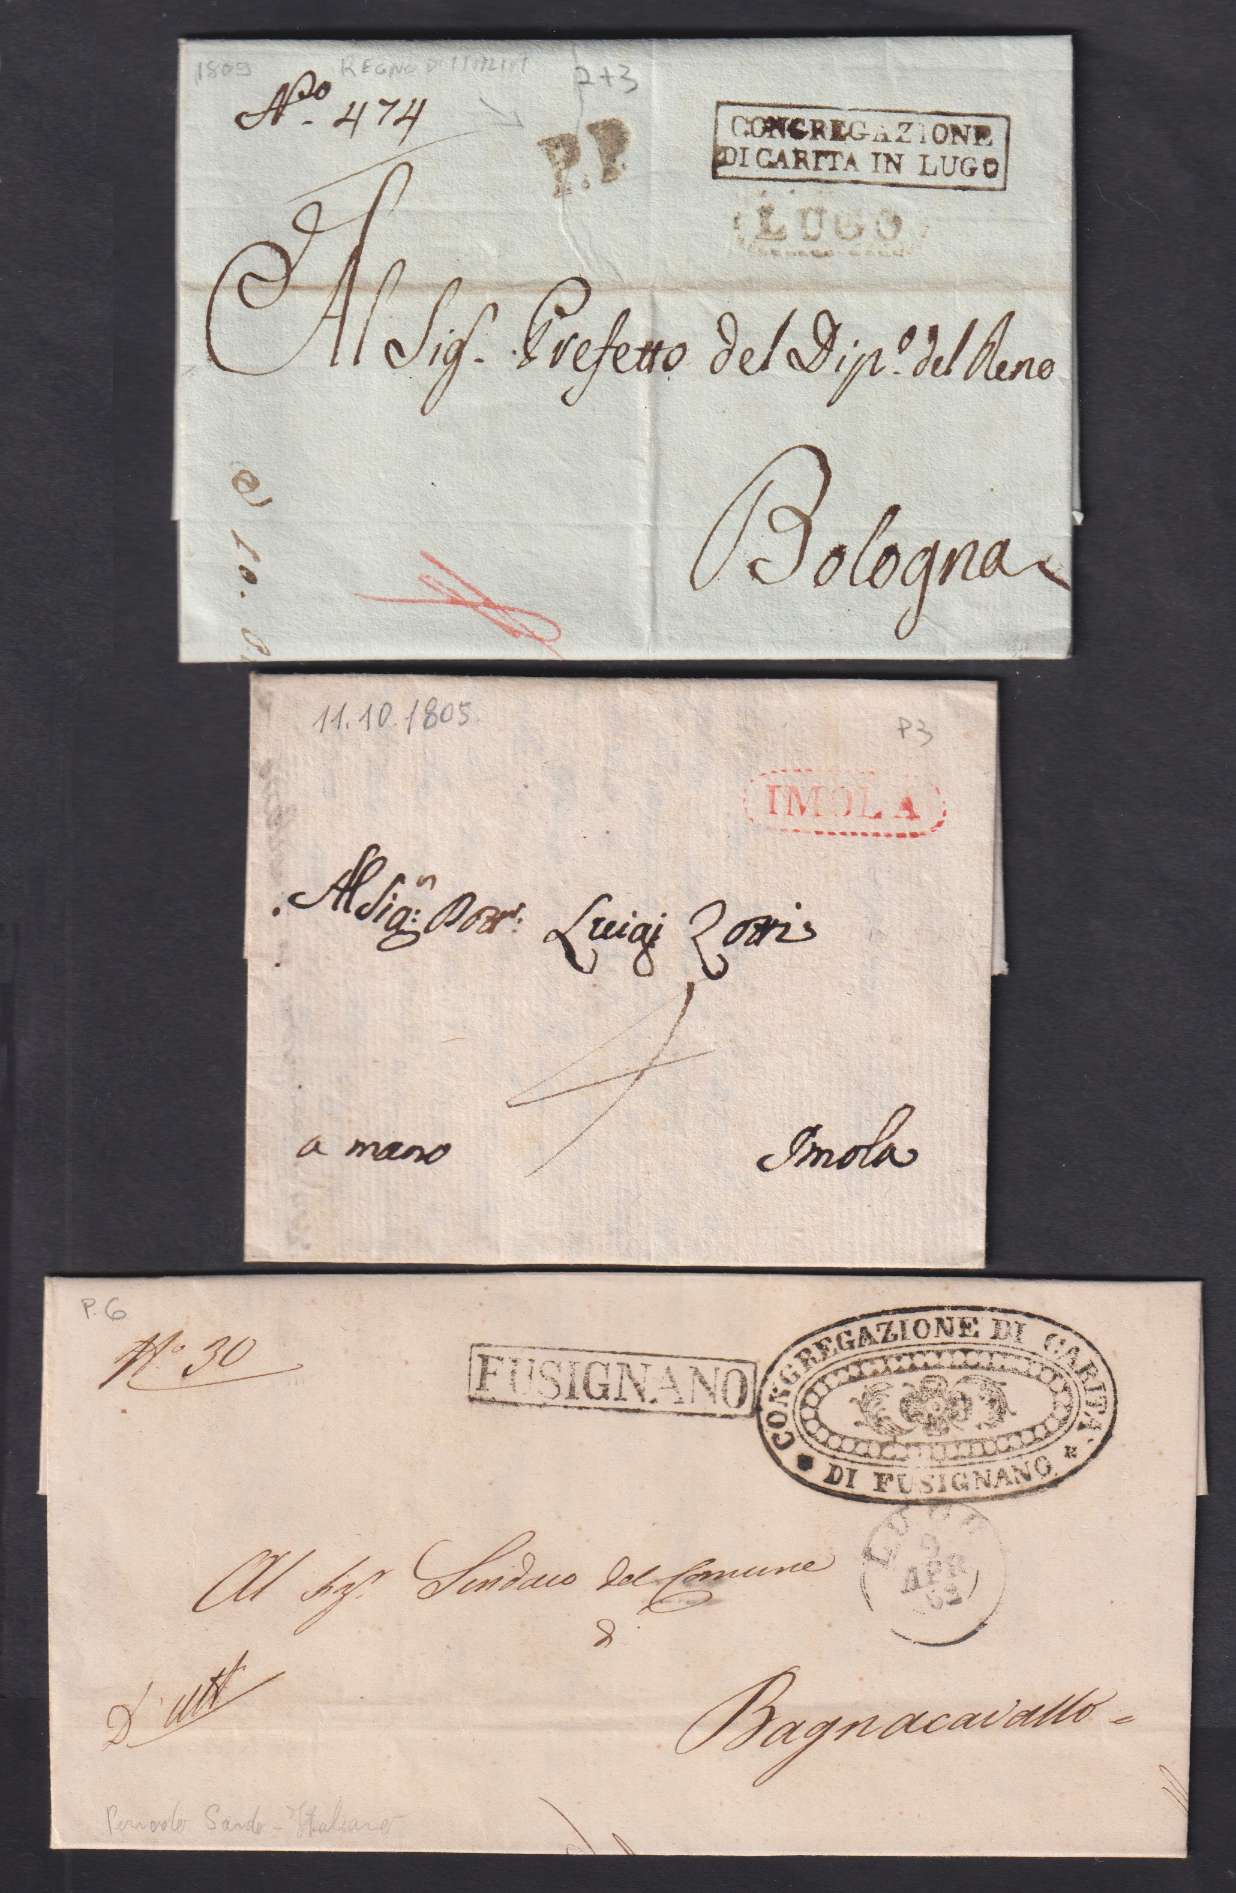 1809
REGNO D'ITALIA
2+3
N.º 474
P.P.
CONGREGAZIONE
DI CARITA IN LUGO
LUGO
Al Sig.r Prefetto del Dip.º del Reno
Bologna
11.10.1805
P3
IMOLA
Al Sig.: Dott.: Luigi Zotti
a mano
Imola
P.6
N.º 30
FUSIGNANO
CONGREGAZIONE DI CARITA'
DI FUSIGNANO
LUGO
9
APR
62
Al Sig.r Sindaco del Comune
di
Bagnacavallo=
D'uff
Periodo Sardo-Italiano